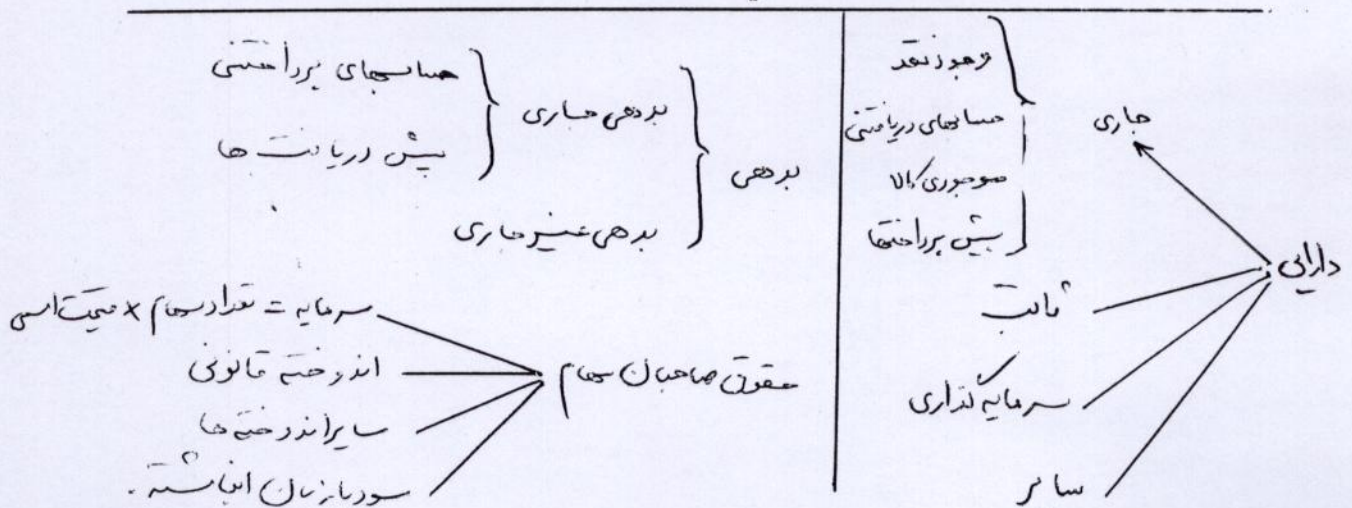 دارایی
جاری
وجوه نقد
حسابهای دریافتنی
موجودی کالا
پیش پرداختها
ثابت
سرمایه گذاری
سایر
بدهی
بدهی جاری
حسابهای پرداختنی
پیش دریافت ها
بدهی غیر جاری
حقوق صاحبان سهام
سرمایه = تعداد سهام × قیمت اسمی
اندوخته قانونی
سایر اندوخته ها
سود یا زیان انباشته .